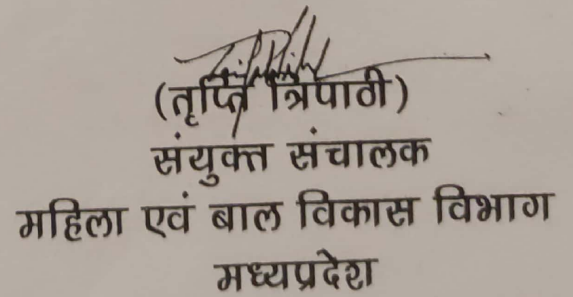 (तृप्ति त्रिपाठी)
संयुक्त संचालक
महिला एवं बाल विकास विभाग
मध्यप्रदेश